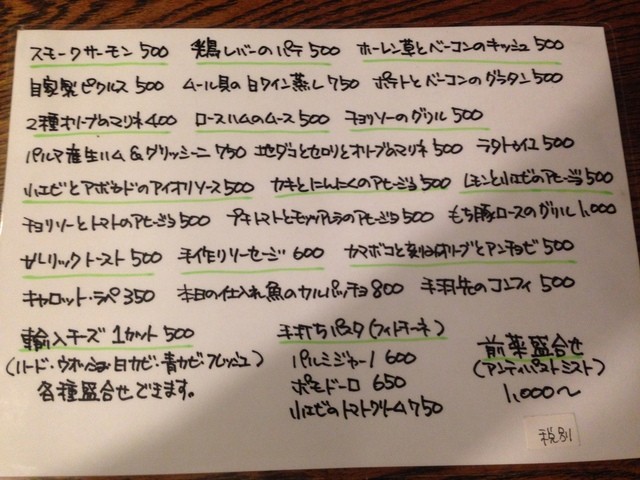 スモークサーモン 500 鶏レバーのパテ 500 ホーレン草とベーコンのキッシュ 500
自家製ピクルス 500 ムール貝の白ワイン蒸し 750 ポテトとベーコンのグラタン 500
2種オリーブのマリネ 400 ロースハムのムース 500 チョリソーのグリル 500
パルマ産生ハム & グリッシーニ 750 地ダコとセロリとオリーブのマリネ 500 ラタトゥイユ 500
小エビとアボカドのアイオリソース 500 カキとにんにくのアヒージョ 500 レモンと小エビのアヒージョ 500
チョリソーとトマトのアヒージョ 500 プチトマトとモッツァレラのアヒージョ 500 もち豚ロースのグリル 1,000
ガーリックトースト 500 手作りソーセージ 600 カマボコと刻みオリーブとアンチョビ 500
キャロット・ラペ 350 本日の仕入れ魚のカルパッチョ 800 手羽先のコンフィ 500
輸入チーズ 1カット 500 手打ちパスタ(フィットチーネ) 前菜盛合せ
(ハード・ウオッシュ・白カビ・青カビ・フレッシュ) パルミジャーノ 600 (アンティパストミスト)
各種盛合せできます。 ポモドーロ 650 1,000〜
小エビのトマトクリーム 750
税別